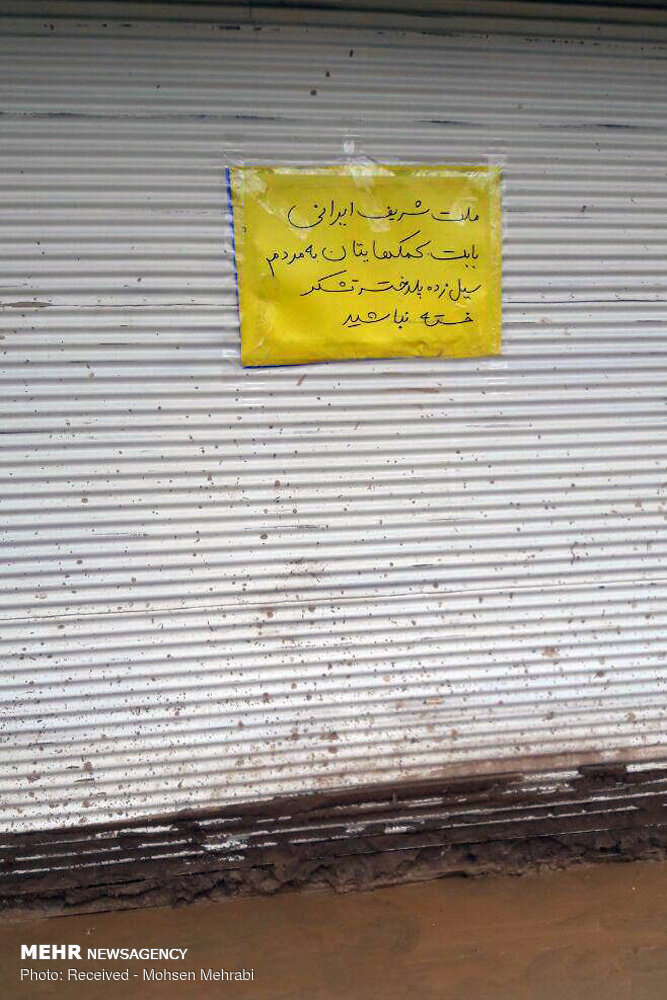 ملت شریف ایرانی
بابت کمکهایتان به مردم
سیل زده پلدختر تشکر
خسته نباشید
MEHR NEWSAGENCY
Photo: Received - Mohsen Mehrabi